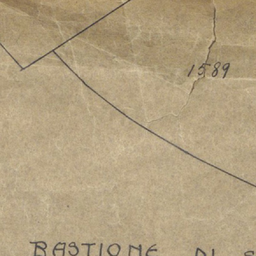 1589
BASTIONE DI S